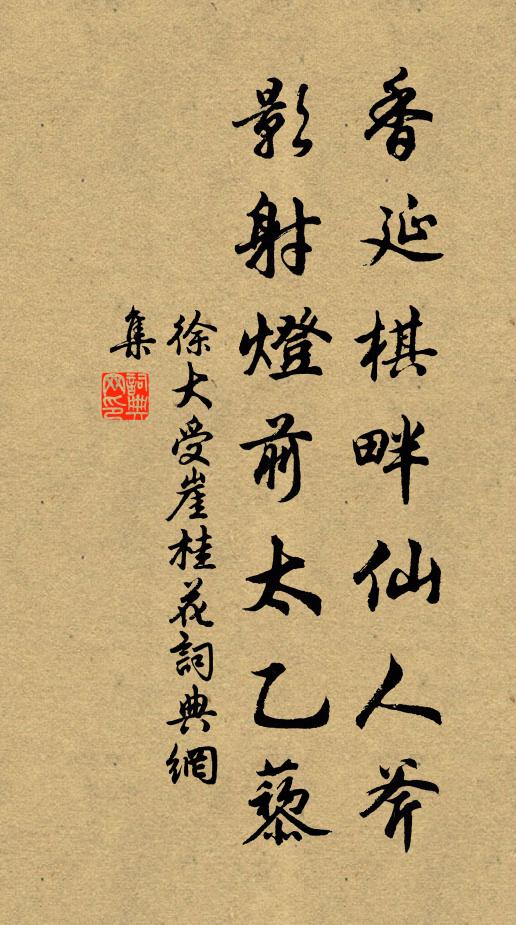 香延棋畔仙人斧
影射燈前太乙藜
徐大受崖桂花詞典網
集
詞典網印